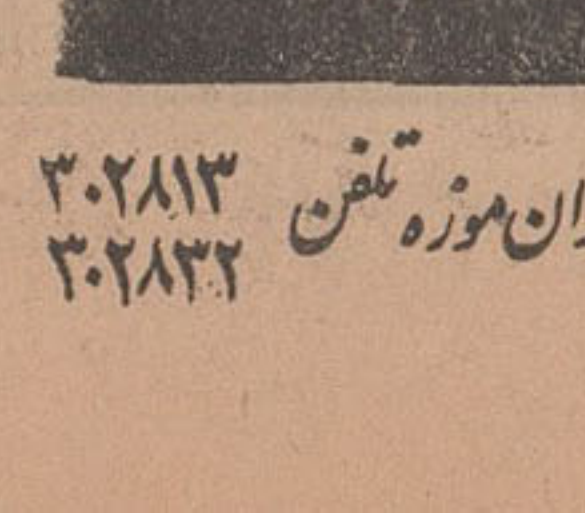 موزه تلفن ۳۰۲۸۱۳
۳۰۲۸۳۲